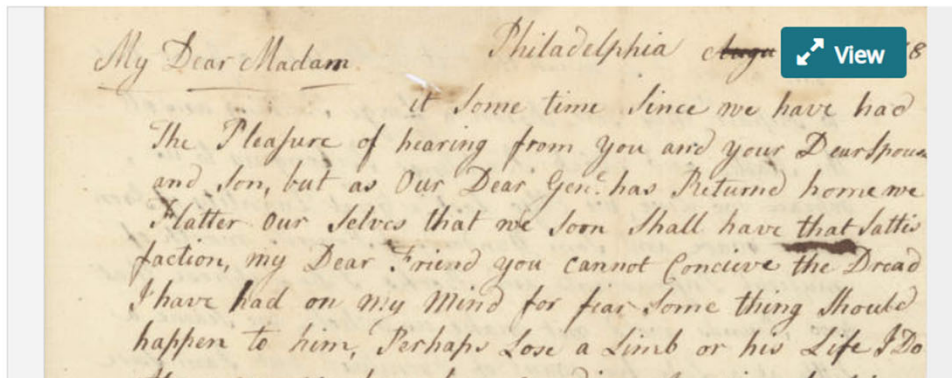 My Dear Madam Philadelphia 8
View
it Some time Since we have had
The Pleasure of hearing from you and your Dear Spouse
and Son, but as Our Dear Genl. has Returnd home we
Flatter Our Selves that we Soon Shall have that Sattis
faction, my Dear Friend you cannot Concieve the Dread
I have had on my Mind for fear Some thing Should
happen to him, Perhaps Lose a Limb or his Life I Do